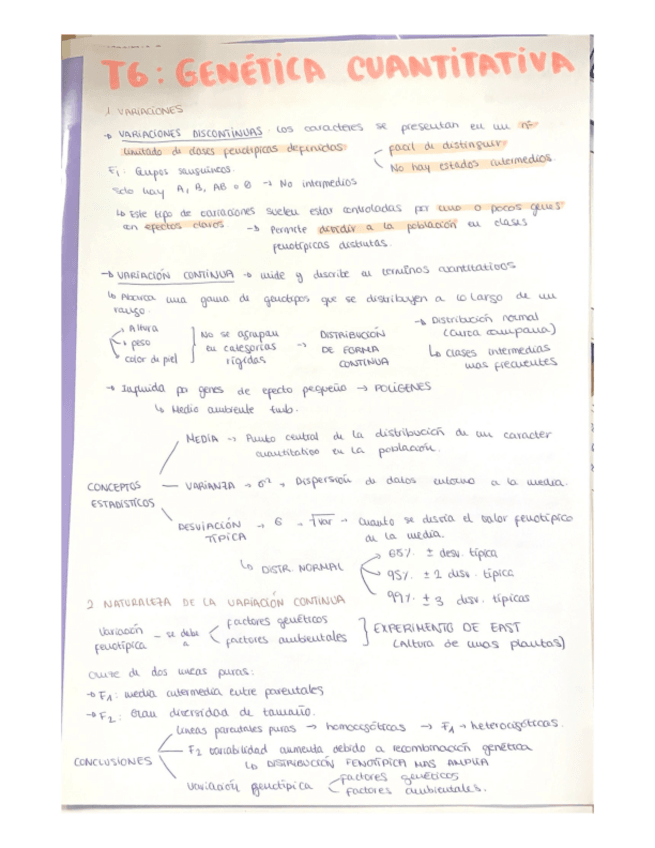 T6: GENÉTICA CUANTITATIVA
1. VARIACIONES
→ VARIACIONES DISCONTINUAS. Los caracteres se presentan en un nº
limitado de clases fenotípicas definidas
facil de distinguir
No hay estados intermedios
Ej: Grupos sanguíneos.
Solo hay A, B, AB o 0 → No intermedios
↳ Este tipo de variaciones suelen estar controladas por uno o pocos genes
con efectos claros. → Permite dividir a la población en clases
fenotípicas distintas.
→ VARIACIÓN CONTINUA → mide y describe en términos cuantitativos
↳ Abarca una gama de genotipos que se distribuyen a lo largo de un
rango.
Altura
peso
color de piel
No se agrupan
en categorías
rígidas
→ DISTRIBUCIÓN
DE FORMA
CONTINUA
→ Distribución normal
(curva campana)
↳ clases intermedias
mas frecuentes
→ Influida por genes de efecto pequeño → POLIGENES
↳ Medio ambiente tamb.
CONCEPTOS
ESTADÍSTICOS
MEDIA → Punto central de la distribución de un caracter
cuantitativo en la población.
VARIANZA → σ² → Dispersión de datos entorno a la media.
DESVIACIÓN
TÍPICA
→ σ → √var → Cuanto se desvía el valor fenotípico
de la media.
↳ DISTR. NORMAL
68% ± desv. típica
95% ± 2 desv. típica
99% ± 3 desv. típicas
2 NATURALEZA DE LA VARIACIÓN CONTINUA
Variación
fenotípica
→ se debe
a
factores genéticos
factores ambientales
EXPERIMENTO DE EAST
(Altura de unas plantas)
Cruce de dos lineas puras:
→ F1: media intermedia entre parentales
→ F2: Gran diversidad de tamaño.
CONCLUSIONES
Líneas parentales puras → homocigóticas → F1 → heterocigóticas.
F2 variabilidad aumenta debido a recombinación genética
↳ DISTRIBUCIÓN FENOTÍPICA MAS AMPLIA
Variación fenotípica
factores genéticos
factores ambientales.